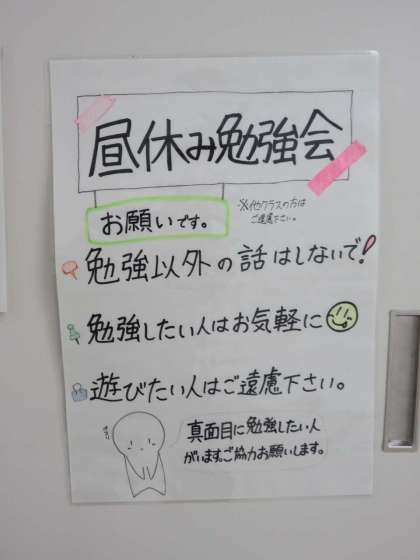 昼休み勉強会
※他クラスの方は
ご遠慮下さい。
お願いです。
勉強以外の話はしないで!
勉強したい人はお気軽に
遊びたい人はご遠慮下さい。
真面目に勉強したい人
がいます。ご協力お願いします。